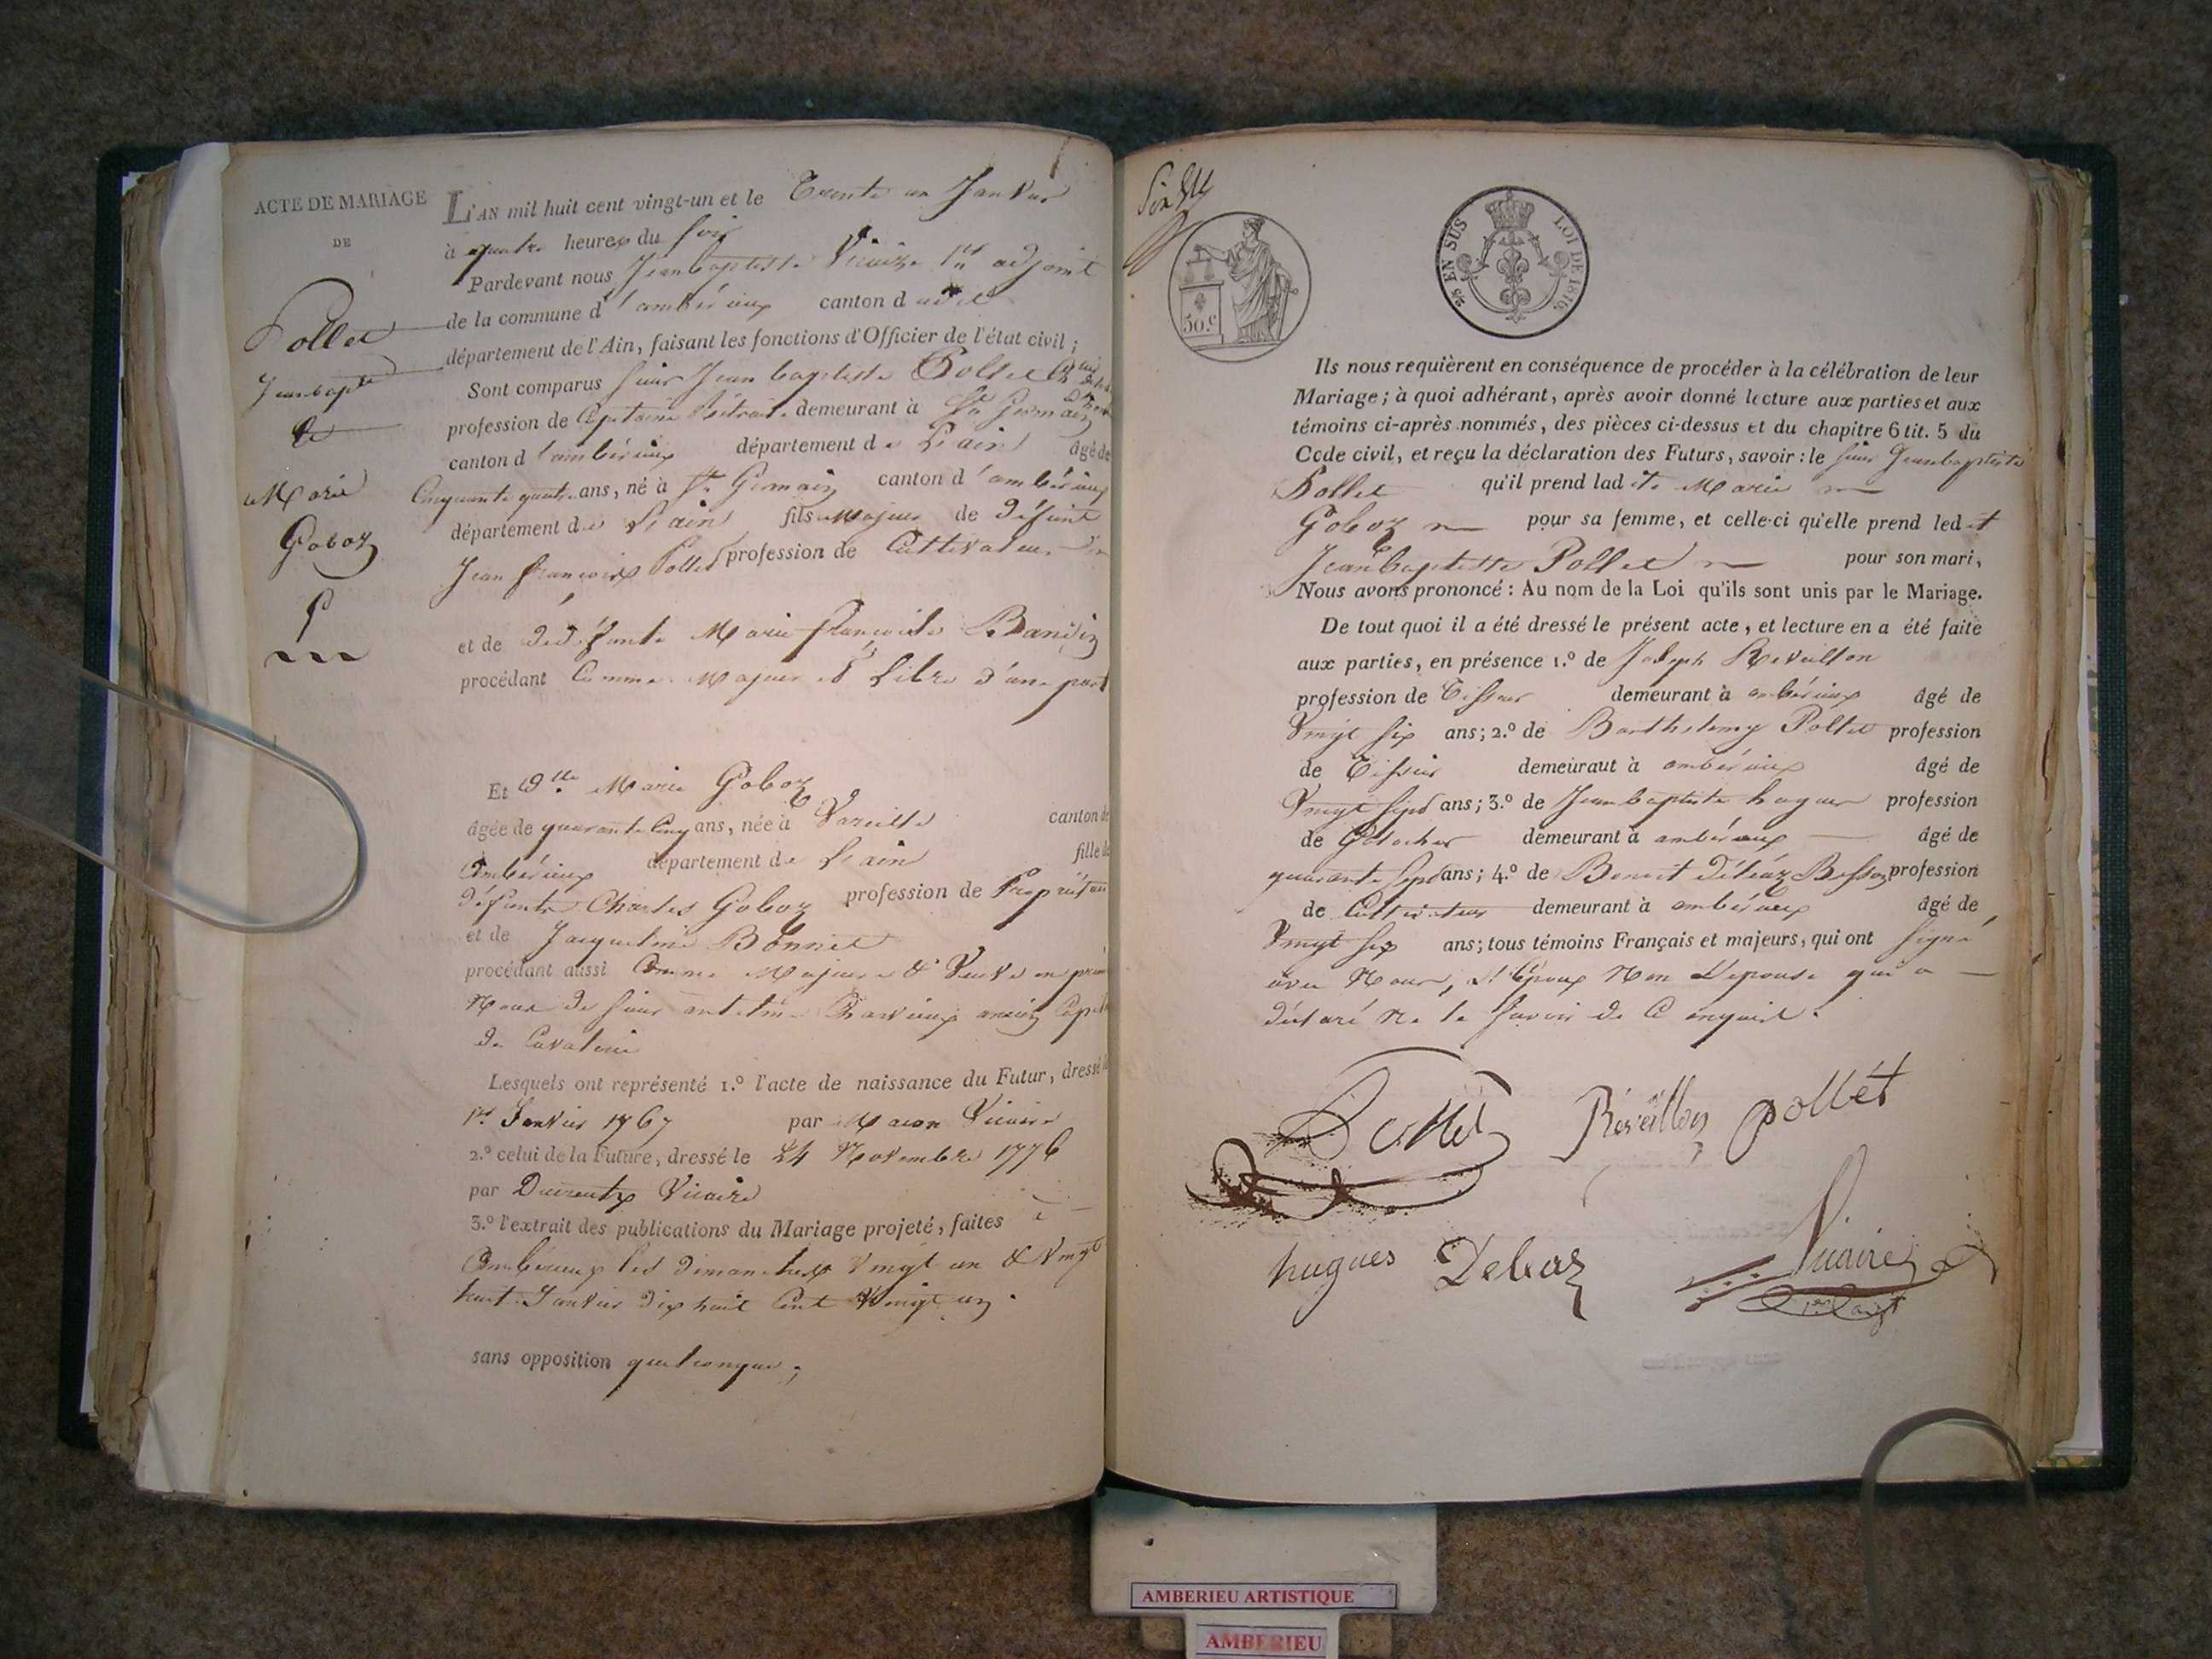 ACTE DE MARIAGE
DE
Pollet
Jean bapte
&
Marie
Goboz
L'AN mil huit cent vingt-un et le Trente un Janvier
à quatre heures du soir
Pardevant nous Jean baptiste Vicaire 1er adjoint
de la commune d'ambérieux canton dudit
département de l'Ain, faisant les fonctions d'Officier de l'état civil ;
Sont comparus sieur Jean baptiste Pollet
profession de Capitaine Retraité demeurant à St Germain
canton d'ambérieux département de L'ain âgé de
Cinquante quatre ans, né à St Germain canton d'ambérieux
département de L'ain fils majeur de défunt
Jean françois Pollet profession de Cultivateur
et de dédéfunte Marie françoise Bandin
procédant Comme Majeur & Libre d'une part
Et Dlle Marie Goboz
âgée de quarante cinq ans, née à Vareille canton de
Ambérieux département de L'ain fille de
défunt Charles Goboz profession de Propriétaire
et de Jacqueline Bonnet
procédant aussi Comme Majeure & Veuve en
Noce de sieur antelme Charvieux ancien
de Cavalerie
Lesquels ont représenté 1.º l'acte de naissance du Futur, dressé le
1er Janvier 1767 par Maron Vicaire
2.º celui de la Future, dressé le 24 Novembre 1776
par Vicaire
3.º l'extrait des publications du Mariage projeté, faites à
Ambérieux les dimanches Vingt un & Vingt
huit Janvier dix huit Cent Vingt un.
sans opposition quelconque ;
50.c
25 EN SUS LOI DE 1816.
Ils nous requièrent en conséquence de procéder à la célébration de leur
Mariage ; à quoi adhérant, après avoir donné lecture aux parties et aux
témoins ci-après nommés, des pièces ci-dessus et du chapitre 6 tit. 5 du
Code civil, et reçu la déclaration des Futurs, savoir : le sieur Jean baptiste
Pollet qu'il prend ladite Marie
Goboz pour sa femme, et celle-ci qu'elle prend ledit
Jean baptiste Pollet pour son mari,
Nous avons prononcé : Au nom de la Loi qu'ils sont unis par le Mariage.
De tout quoi il a été dressé le présent acte, et lecture en a été faite
aux parties, en présence 1.º de Joseph Reveillon
profession de Tisseur demeurant à ambérieux âgé de
Vingt six ans ; 2.º de Barthelemy Pollet profession
de Tisseur demeuraut à ambérieux âgé de
Vingt sept ans ; 3.º de Jean baptiste hugues profession
de Galocher demeurant à ambérieux âgé de
quarante sept ans ; 4.º de Benoit déléaz Besson profession
de Cultivateur demeurant à ambérieux âgé de
Vingt six ans ; tous témoins Français et majeurs, qui ont signé
avec Nous, & l'époux Non L'epouse qui a
déclaré Ne le savoir de Ce enquise.
Pollet Réveillon pollét
hugues Deleaz Vicaire
1er adjt
AMBERIEU ARTISTIQUE
AMBERIEU